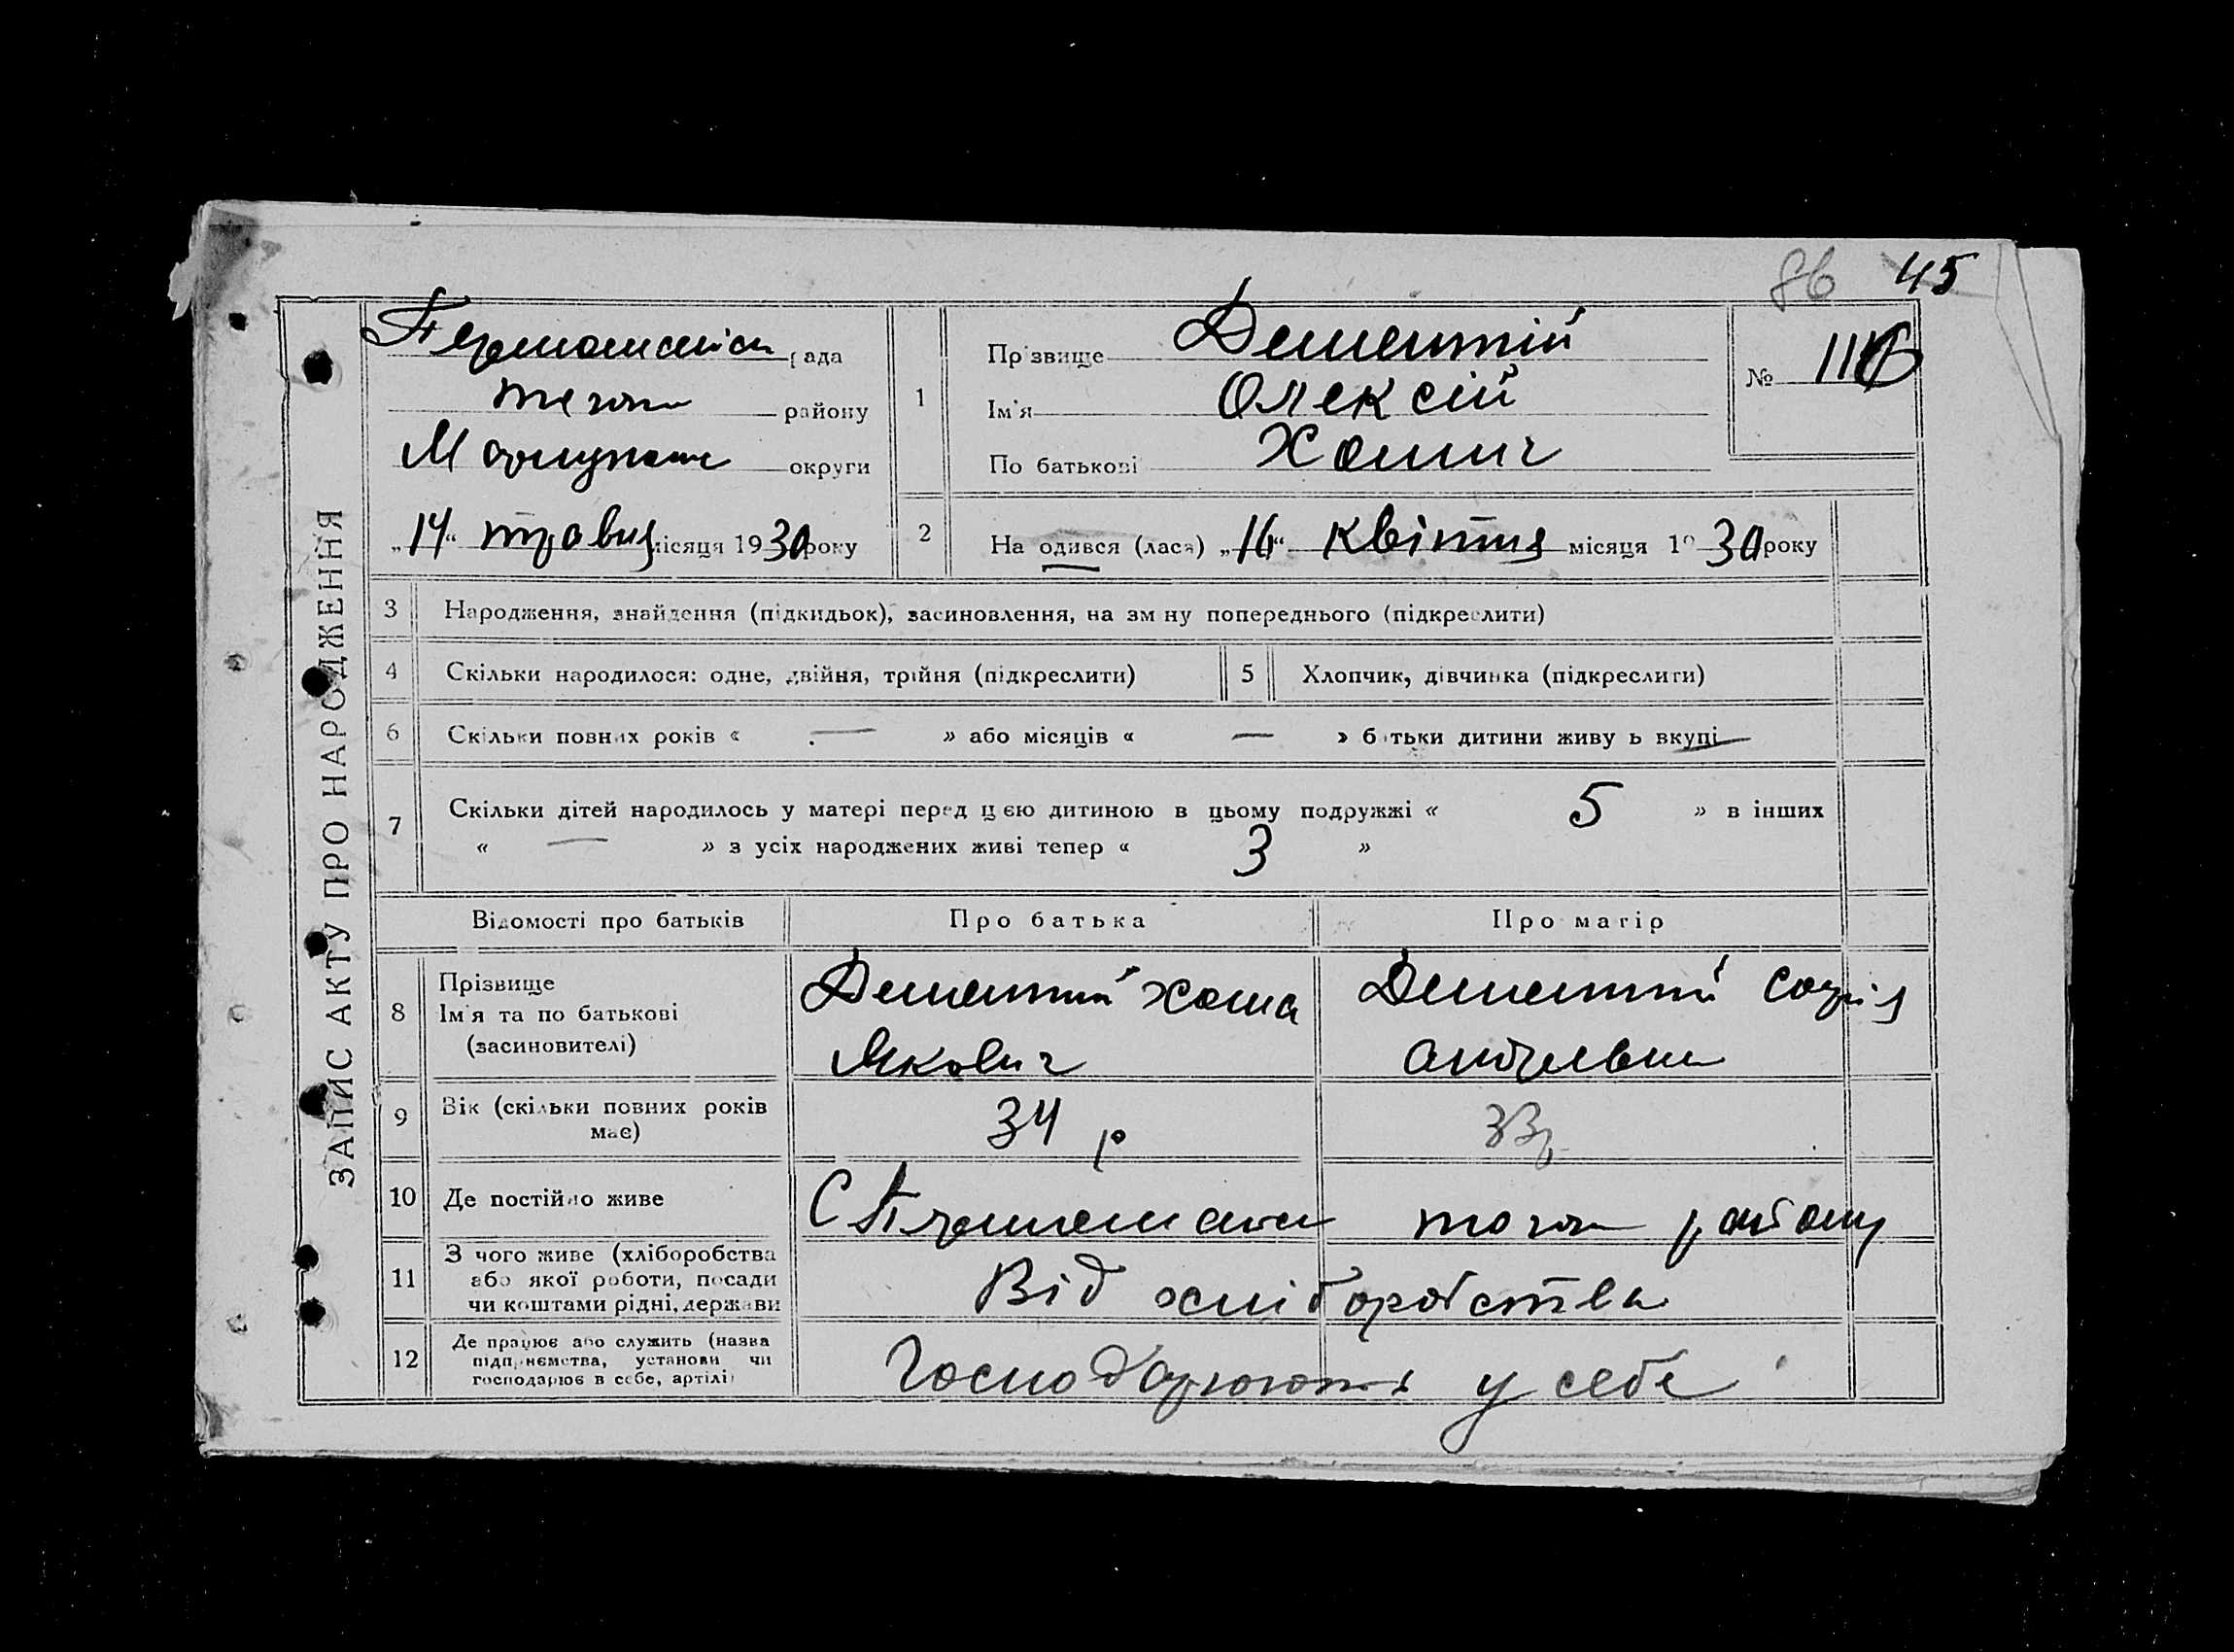 86 45
ЗАПИС АКТУ ПРО НАРОДЖЕННЯ
рада
району
округи
„14“ травня місяця 1930 року
1
Прізвище Дементій
Ім'я Олексій
По батькові Хомич
№ 116
2 Народився (лася) „16“ квітня місяця 1930 року
3 Народження, знайдення (підкидьок), засиновлення, на зміну попереднього (підкреслити)
4 Скільки народилося: одне, двійня, трійня (підкреслити)
5 Хлопчик, дівчинка (підкреслити)
6 Скільки повних років « — » або місяців « — » батьки дитини живуть вкупі
7 Скільки дітей народилось у матері перед цією дитиною в цьому подружжі « 5 » в інших
« — » з усіх народжених живі тепер « 3 »
Відомості про батьків Про батька Про матір
8 Прізвище
Ім'я та по батькові
(засиновителі)
Дементій Хома
Якович
Дементій Софія
Андреевна
9 Вік (скільки повних років
має)
34 р
33 р
10 Де постійно живе
С того району
11 З чого живе (хліборобства
або якої роботи, посади
чи коштами рідні, держави
Від хліборобства
12 Де працює або служить (назва
підприємства, установи чи
господарює в себе, артілі)
Господарюють у себе